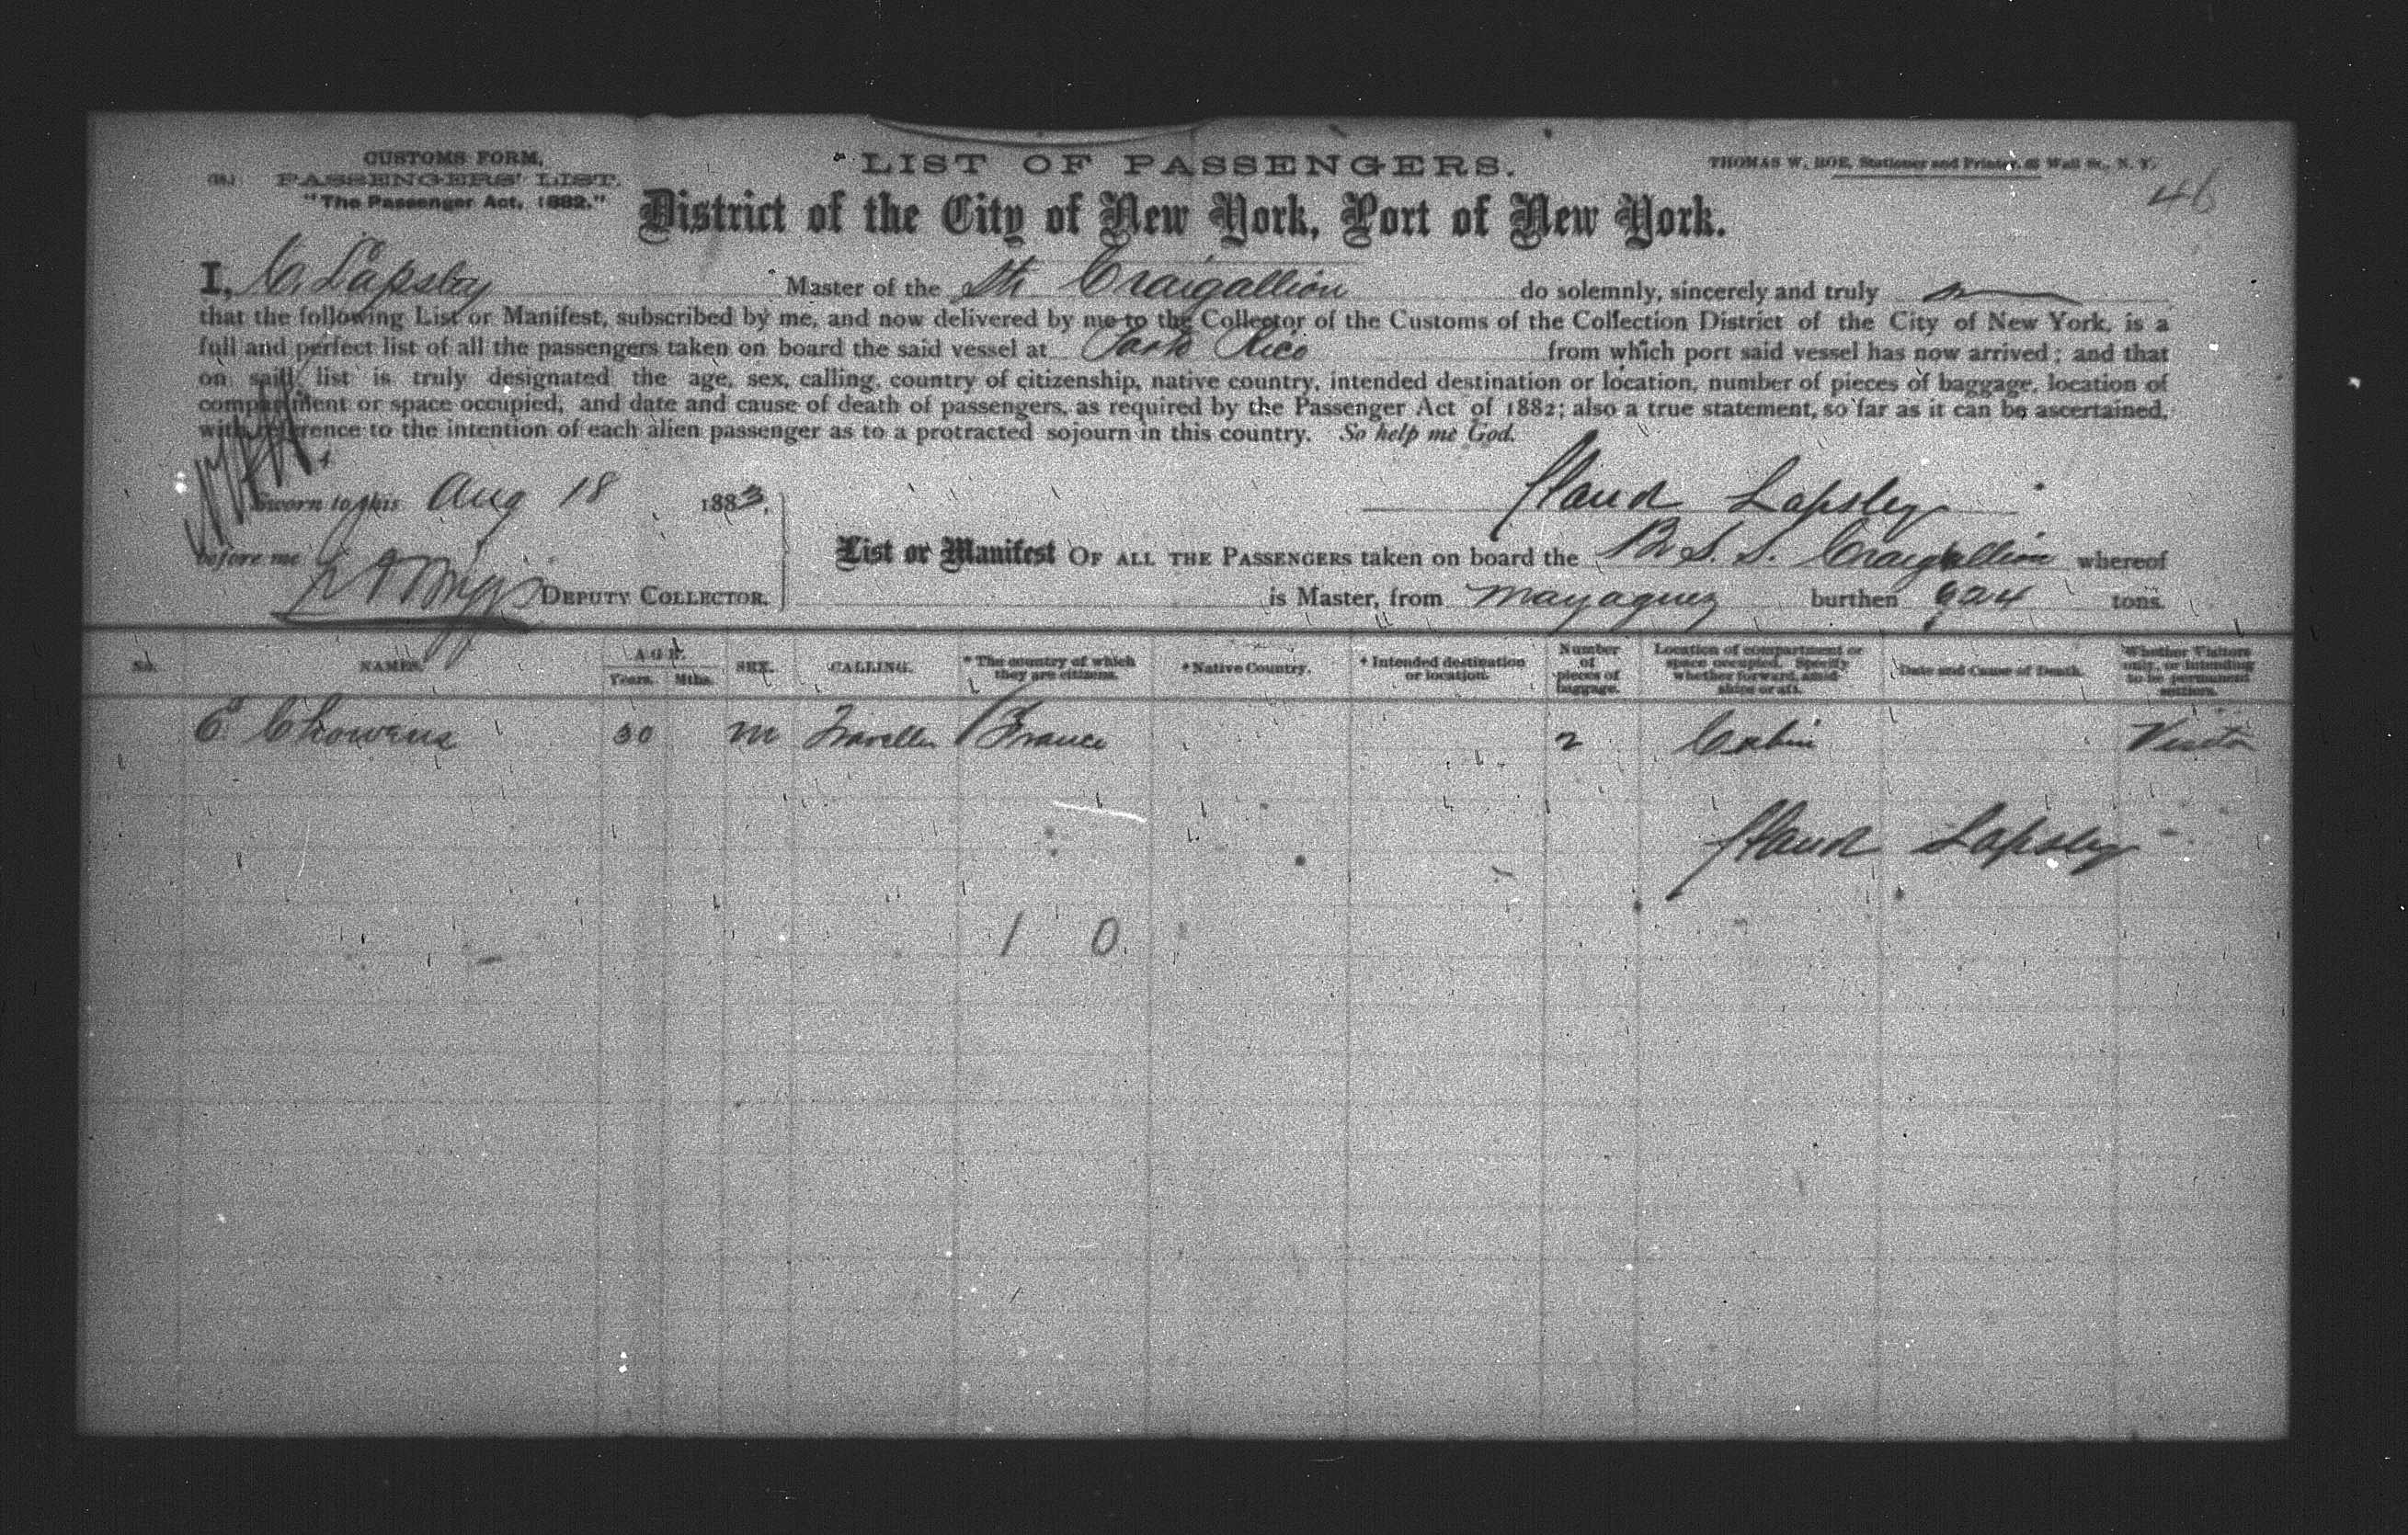 CUSTOMS FORM,
PASSENGERS' LIST.
"The Passenger Act, 1882."
LIST OF PASSENGERS.
THOMAS W. ROE, Stationer and Printer, Wall St., N. Y.
46
District of the City of New York, Port of New York.
I, C. Lapsley Master of the Str Craigallion do solemnly, sincerely and truly
that the following List or Manifest, subscribed by me, and now delivered by me to the Collector of the Customs of the Collection District of the City of New York, is a
full and perfect list of all the passengers taken on board the said vessel at Porto Rico from which port said vessel has now arrived; and that
on said list is truly designated the age, sex, calling, country of citizenship, native country, intended destination or location, number of pieces of baggage, location of
compartment or space occupied, and date and cause of death of passengers, as required by the Passenger Act of 1882; also a true statement, so far as it can be ascertained,
with reference to the intention of each alien passenger as to a protracted sojourn in this country. So help me God.
Sworn to this Aug 18 1883,
Claud Lapsley
before me
DEPUTY COLLECTOR.
List or Manifest OF ALL THE PASSENGERS taken on board the Br S. S. Craigallion whereof
is Master, from Mayaguez burthen 924 tons.
No. NAMES. AGE. Years. Mths. SEX. CALLING. * The country of which they are citizens. * Native Country. * Intended destination or location. Number of pieces of baggage. Location of compartment or space occupied. Specify whether forward, amidships or aft. Date and Cause of Death. Whether Visitors only, or intending to be permanent settlers.
E. 30 M Traveller France 2 Cabin Visitor
Claud Lapsley
1 0